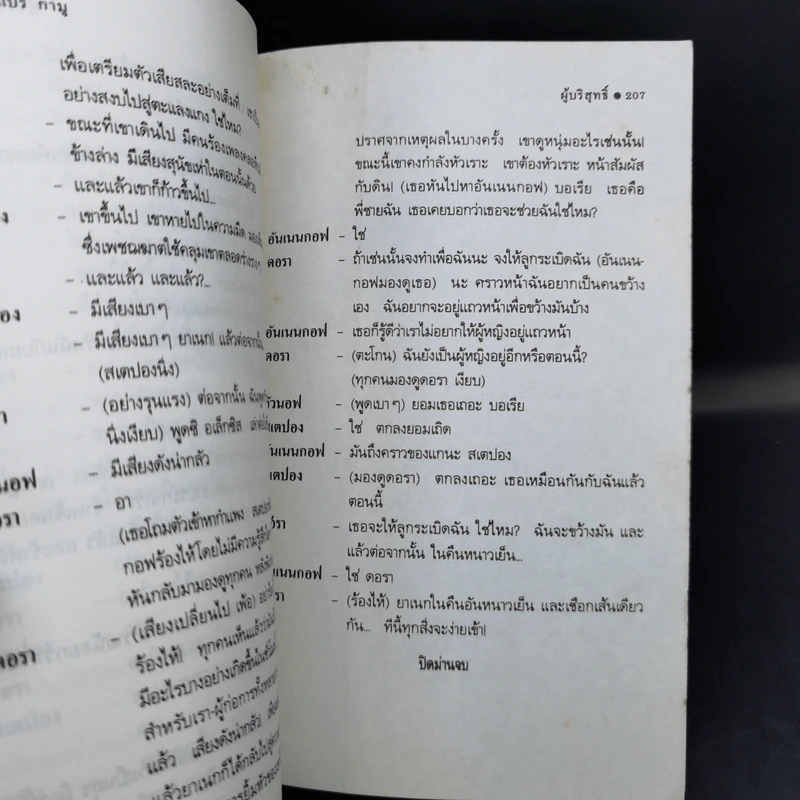 เพื่อเตรียมตัวเสียสละอย่างเต็มที่
อย่างสงบไปสู่ตะแลงแกง ใช่ไหม?
– ขณะที่เขาเดินไป มีคนร้องเพลง
ข้างล่าง มีเสียงสุนัขเห่าในตอนนั้นด้วย
– และแล้วเขาก็ก้าวขึ้นไป...
– เขาขึ้นไป เขาหายไปในความมืด
ซึ่งเพชฌฆาตใช้คลุมเขาตลอดร่าง
– และแล้ว และแล้ว?...
– มีเสียงเบาๆ
– มีเสียงเบาๆ ยาเนก! แล้วต่อจากนั้น
(สเตปองนิ่ง)
– (อย่างรุนแรง) ต่อจากนั้น
นิ่งเงียบ) พูดซิ อเล็กซิส
– มีเสียงดังน่ากลัว
– อา
(เธอโถมตัวเข้าหากำแพง
กอฟร้องไห้โดยไม่มีความรู้สึก
หันกลับมามองดูทุกคน
– (เสียงเปลี่ยนไป เพ้อ)
ร้องไห้! ทุกคนเห็นแล้ว
มีอะไรบางอย่างเกิดขึ้น
สำหรับเรา-ผู้ก่อการ
แล้ว เสียงดังน่ากลัว!
แล้วยาเนกก็ได้กลับไปสู่
ผู้บริสุทธิ์ ● 207
ปราศจากเหตุผลในบางครั้ง เขาดูหนุ่มอะไรเช่นนั้น!
ขณะนี้เขาคงกำลังหัวเราะ เขาต้องหัวเราะ หน้าสัมผัส
กับดิน! (เธอหันไปหาอันเนนกอฟ) บอเรีย เธอคือ
พี่ชายฉัน เธอเคยบอกว่าเธอจะช่วยฉันใช่ไหม?
อันเนนกอฟ – ใช่
ดอรา – ถ้าเช่นนั้นจงทำเพื่อฉันนะ จงให้ลูกระเบิดฉัน (อันเนน-
กอฟมองดูเธอ) นะ คราวหน้าฉันอยากเป็นคนขว้าง
เอง ฉันอยากจะอยู่แถวหน้าเพื่อขว้างมันบ้าง
อันเนนกอฟ – เธอก็รู้ดีว่าเราไม่อยากให้ผู้หญิงอยู่แถวหน้า
ดอรา – (ตะโกน) ฉันยังเป็นผู้หญิงอยู่อีกหรือตอนนี้?
(ทุกคนมองดูดอรา เงียบ)
วัวนอฟ – (พูดเบาๆ) ยอมเธอเถอะ บอเรีย
สเตปอง – ใช่ ตกลงยอมเถิด
อันเนนกอฟ – มันถึงคราวของแกนะ สเตปอง
สเตปอง – (มองดูดอรา) ตกลงเถอะ เธอเหมือนกันกับฉันแล้ว
ตอนนี้
ดอรา – เธอจะให้ลูกระเบิดฉัน ใช่ไหม? ฉันจะขว้างมัน และ
แล้วต่อจากนั้น ในคืนหนาวเย็น...
อันเนนกอฟ – ใช่ ดอรา
ดอรา – (ร้องไห้) ยาเนกในคืนอันหนาวเย็น และเชือกเส้นเดียว
กัน... ทีนี้ทุกสิ่งจะง่ายเข้า!
ปิดม่านจบ